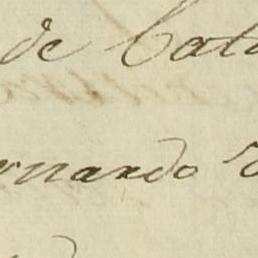 de Cata
ernardo